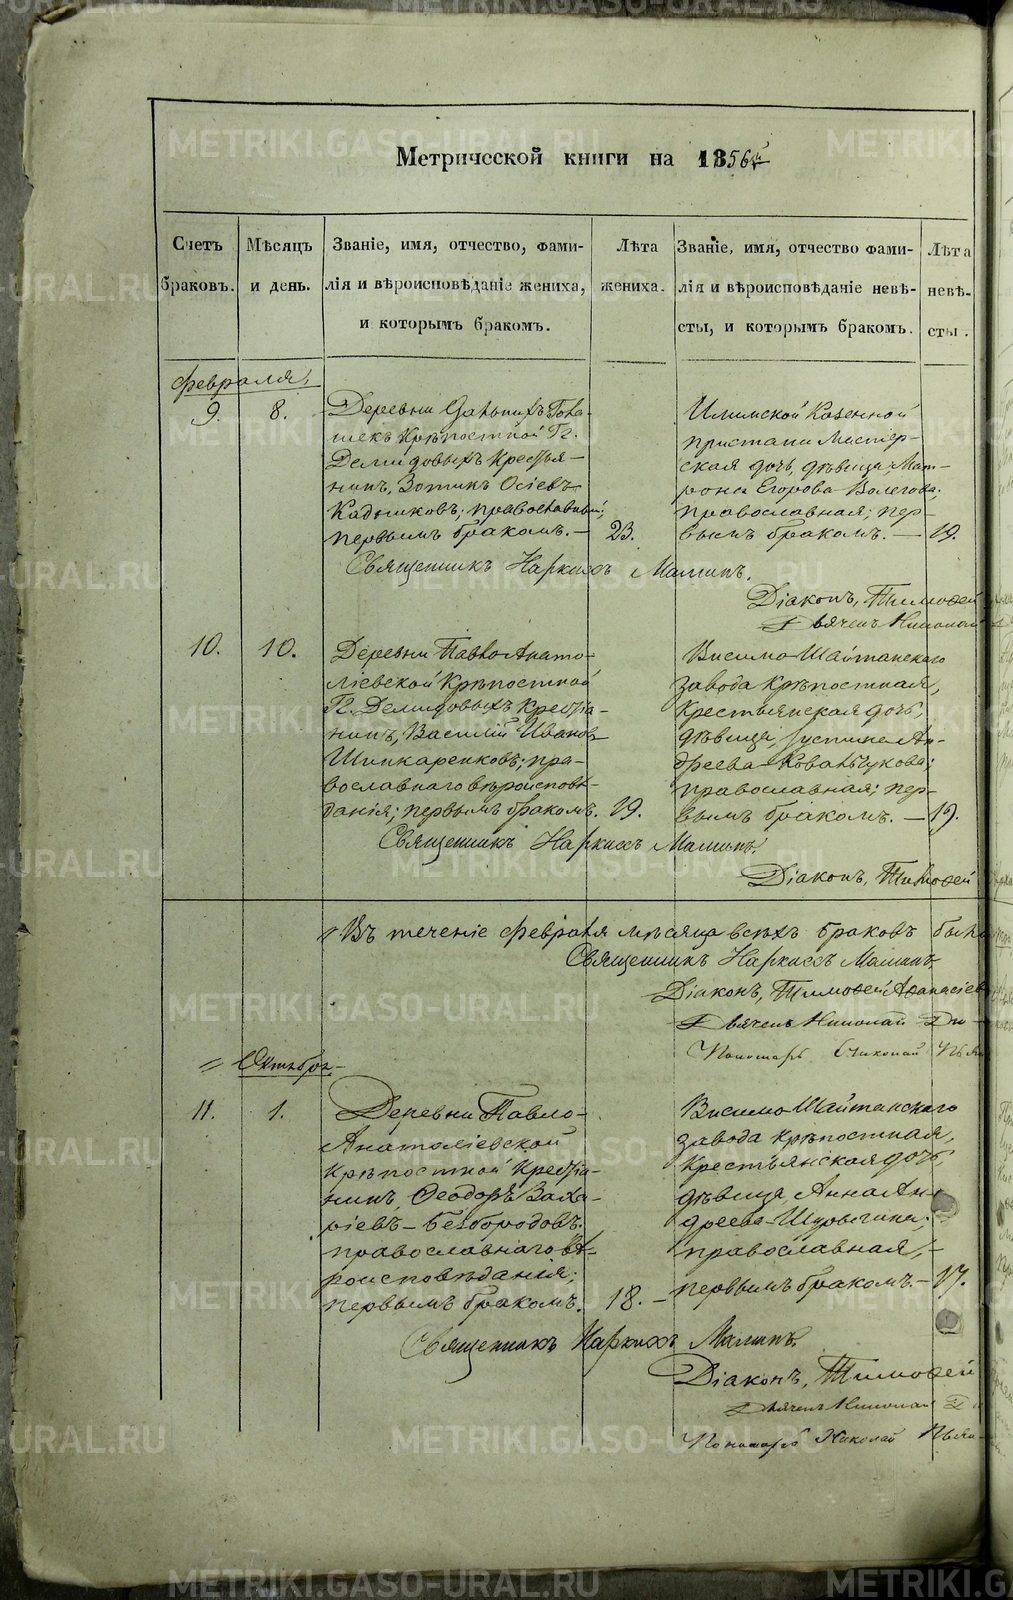 Метрической книги на 1856й
Счетъ браковъ.
Мѣсяцъ и день.
Званіе, имя, отчество, фами-
лія и вѣроисповѣданіе жениха,
и которымъ бракомъ.
Лѣта жениха.
Званіе, имя, отчество фами-
лія и вѣроисповѣданіе невѣ-
сты, и которымъ бракомъ.
Лѣта невѣ-
сты.
Февраля.
9.
8.
Деревни
Крѣпостной Гг.
Демидовыхъ Кресть-
нинъ, Зотикъ Осіевъ
Кадниковъ; православный;
первымъ бракомъ.—
23.
Илимской Казенной
пристани Мастер-
ская дочь, дѣвица, Мат-
рона Егорова Волегова;
православная; пер-
вымъ бракомъ.—
19.
Священникъ Наркисъ Маминъ.
Діаконъ, Тимоѳей
Дьячекъ Николай
10.
10.
Деревни Павло Анато-
ліевской Крѣпостной
Гг. Демидовыхъ кресья-
нинъ, Василій Ивановъ
Шинкаренковъ; пра-
вославнаго вѣроисповѣ-
данія; первымъ бракомъ.
19.
Висимо Шайтанскаго
завода крѣпостная,
крестьянская дочь,
дѣвица, Іустина Ан-
дреева Ковальчукова;
православная; пер-
вымъ бракомъ.—
19.
Священникъ Наркисъ Маминъ.
Діаконъ, Тимоѳей
Въ теченіе февраля мѣсяца всѣхъ браковъ было
Священникъ Наркисъ Маминъ.
Діаконъ, Тимоѳей Аѳанасіев
Дьячекъ Николай
Пономарь Николай Пья
Октября
11.
1.
Деревни Павло-
Анатоліевской
Крѣпостной кресья-
нинъ, Ѳеодоръ Заха-
ріевъ—Безбородовъ.
православнаго вѣ-
роисповѣданія;
первымъ бракомъ.
18.—
Висимо Шайтанскаго
завода крѣпостная,
крестьянская дочь,
дѣвица Анна Ан-
дреева—Шурыгина;
православная,—
первымъ бракомъ—
17.
Священникъ Наркисъ Маминъ.
Діаконъ, Тимоѳей
Дьячекъ Николай
Пономарь Николай Пья-
METRIKI.GASO-URAL.RU